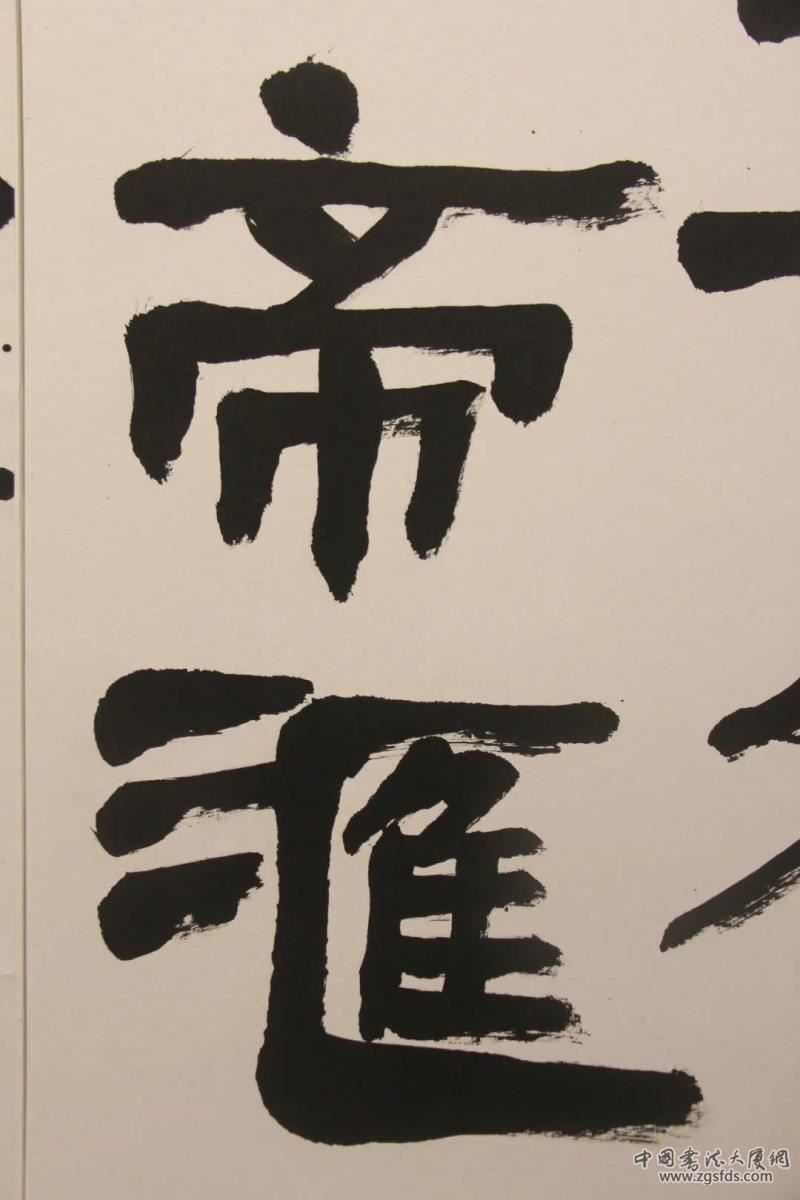 帝
滙
中國書法大厦網
www.zgsfds.com